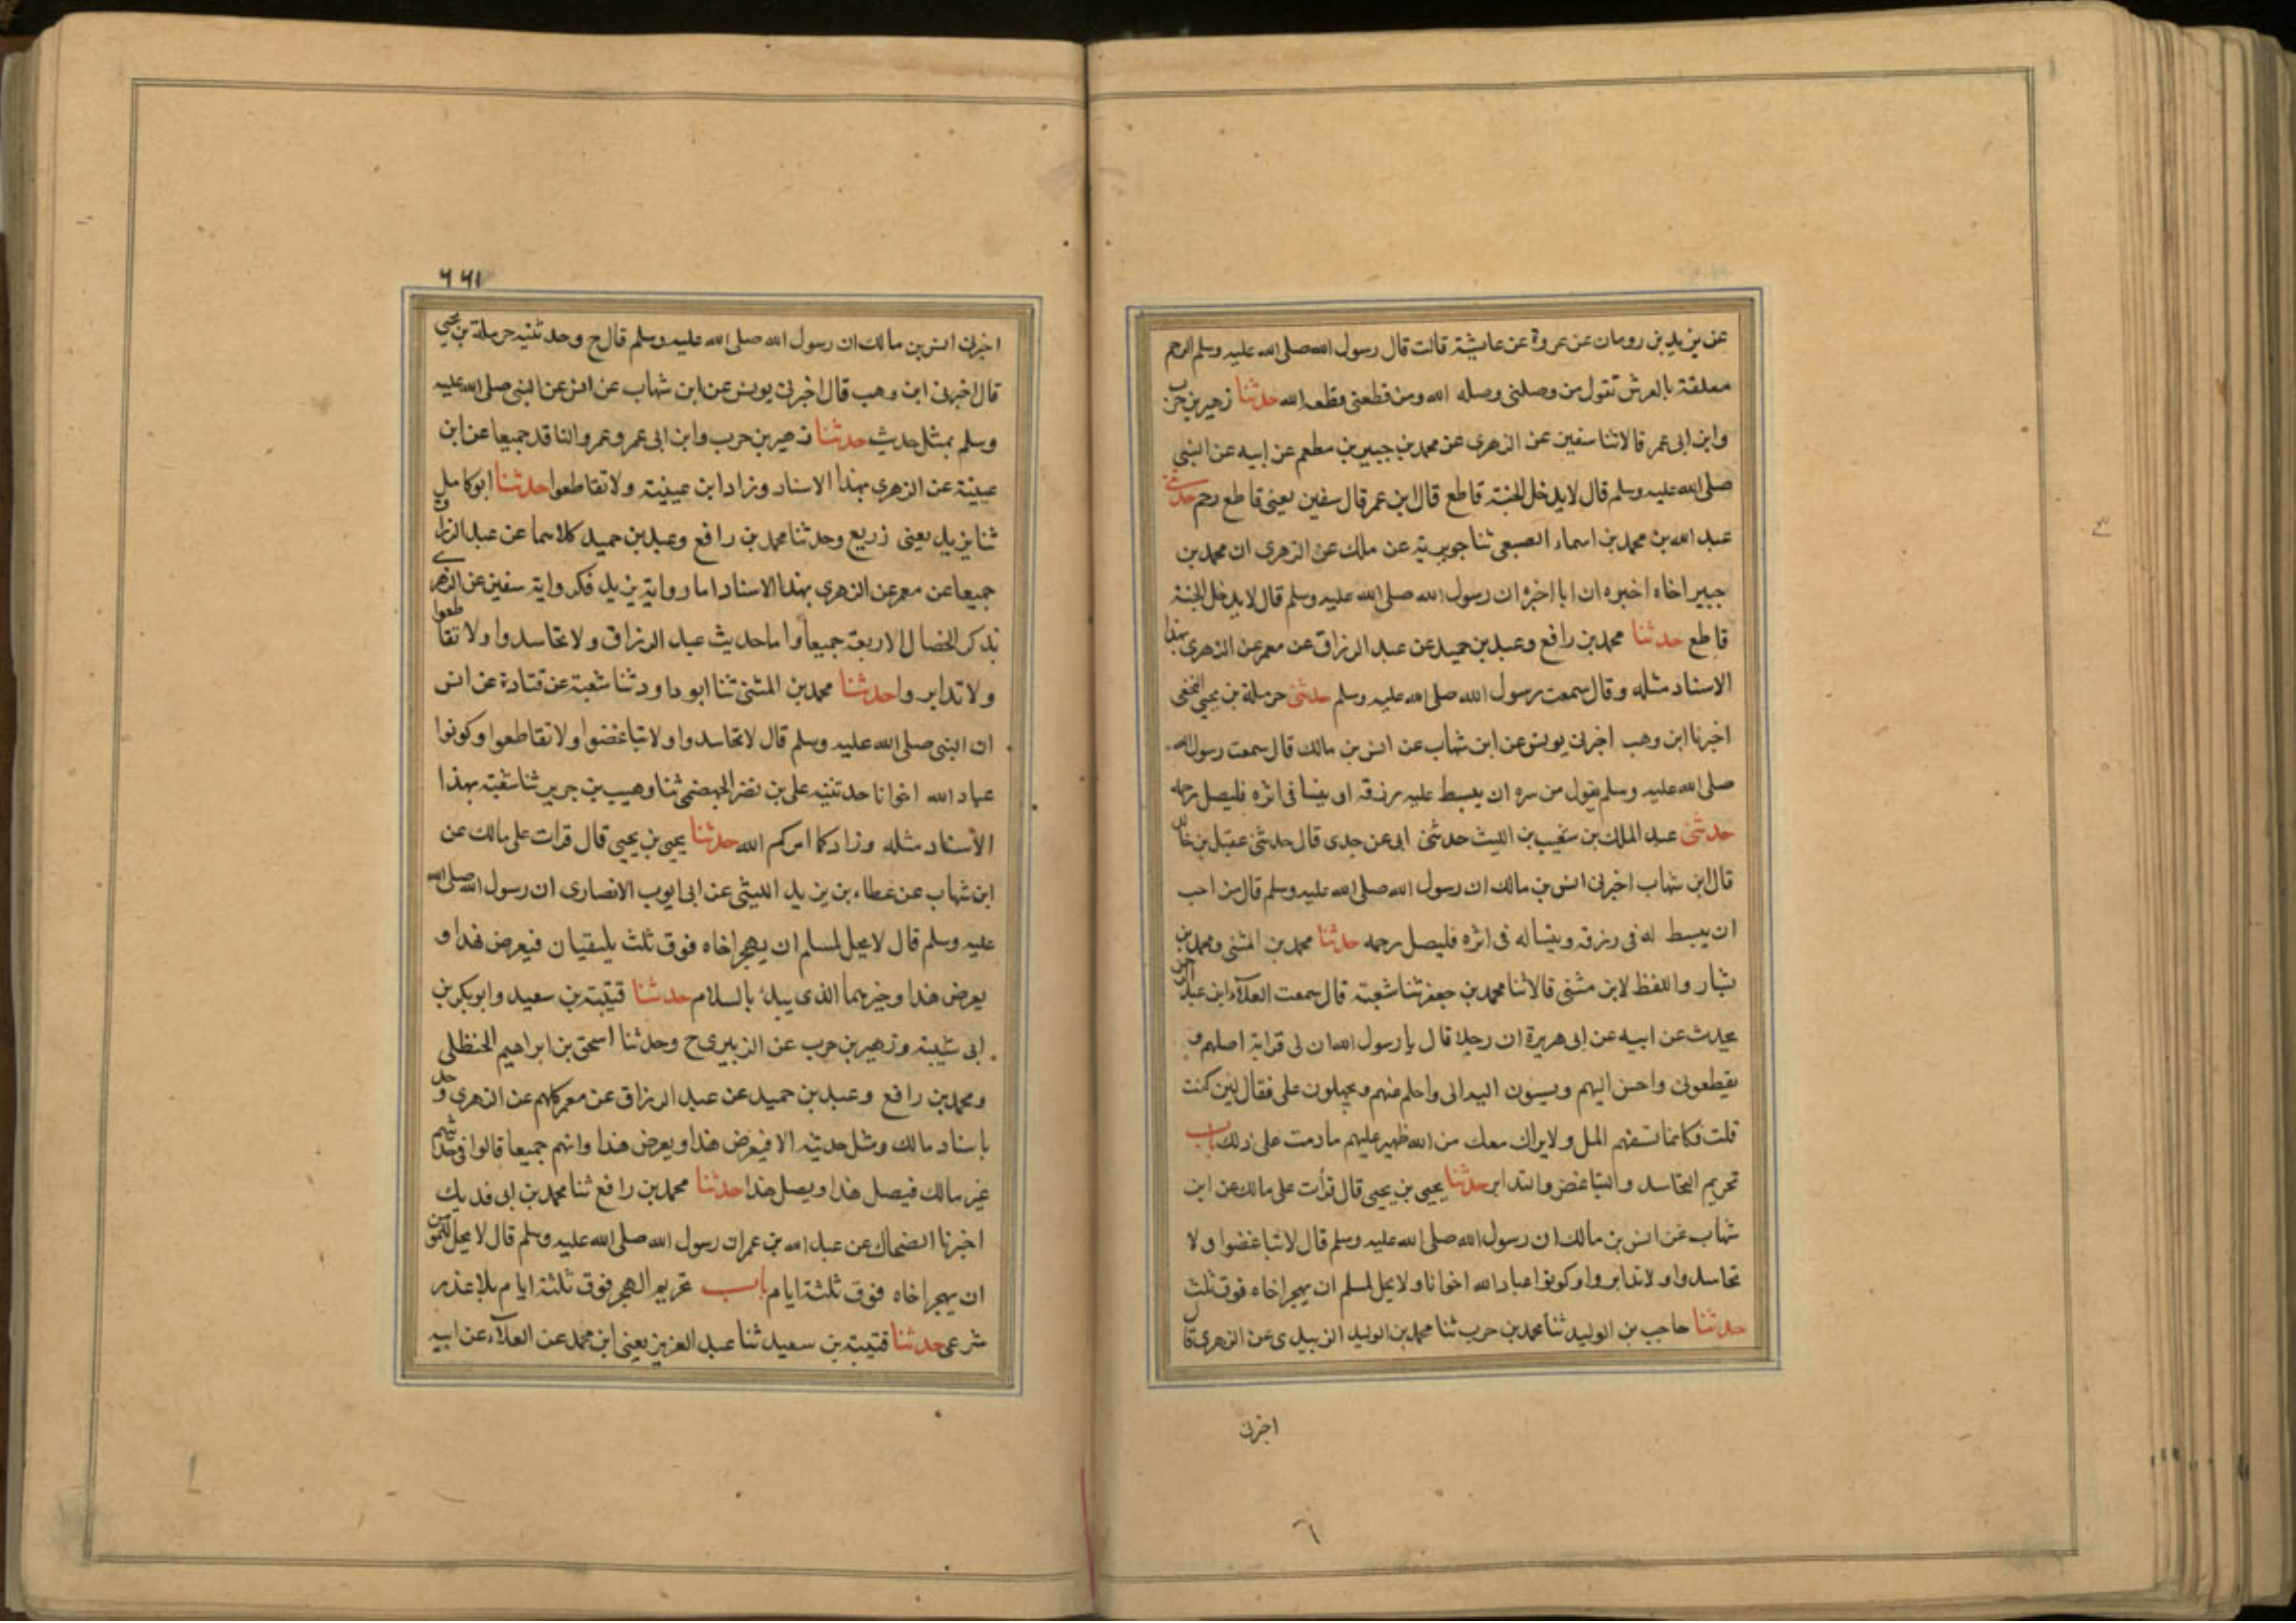 عن يزيد بن رومان عن عروة عن عايشة قالت قال رسول الله صلى الله عليه وسلم الرحم
معلقة بالعرش تقول من وصلنى وصله الله ومن قطعنى قطعه الله حدثنا زهير بن حرب
وابن ابى عمر قالا ثنا سفين عن الزهرى عن محمد بن جبير بن مطعم عن ابيه عن النبى
صلى الله عليه وسلم قال لا يدخل الجنة قاطع قال ابن عمر قال سفين يعنى قاطع رحم حدثنى
عبد الله بن محمد بن اسماء الضبعى ثنا جويرية عن مالك عن الزهرى ان محمد بن
جبير اخاه اخبره ان ابا اخبره ان رسول الله صلى الله عليه وسلم قال لا يدخل الجنة
قاطع حدثنا محمد بن رافع وعبد بن حميد عن عبد الرزاق عن معمر عن الزهرى بهذا
الاسناد مثله وقال سمعت رسول الله صلى الله عليه وسلم حدثنى حرملة بن يحيى التجيبى
اخبرنا ابن وهب اخبرنى يونس عن ابن شهاب عن انس بن مالك قال سمعت رسول الله
صلى الله عليه وسلم يقول من سره ان يبسط عليه رزقه او ينسا فى اثره فليصل رحمه
حدثنى عبد الملك بن شعيب بن الليث حدثنى ابى عن جدى قال حدثنى عقيل بن خالد
قال ابن شهاب اخبرنى انس بن مالك ان رسول الله صلى الله عليه وسلم قال من احب
ان يبسط له فى رزقه وينسا له فى اثره فليصل رحمه حدثنا محمد بن المثنى ومحمد بن
بشار واللفظ لابن مثنى قالا ثنا محمد بن جعفر ثنا شعبة قال سمعت العلآء ابن عبد الرحمن
يحدث عن ابيه عن ابى هريرة ان رجلا قال يا رسول الله ان لى قرابة اصلهم و
يقطعونى واحسن اليهم ويسيون الىواحلم عنهم ويجهلون على فقال لين كنت
قلت فكانما تسفهم المل ولا يزال معك من الله ظهير عليهم ما دمت على ذلك باب
تحريم التحاسد والتباغض والتدابر حدثنا يحيى بن يحيى قال قرأت على مالك عن ابن
شهاب عن انس بن مالك ان رسول الله صلى الله عليه وسلم قال لا تباغضوا ولا
تحاسدوا ولا تدابروا وكونوا عباد الله اخوانا ولا يحل لمسلم ان يهجر اخاه فوق ثلث
حدثنا حاجب بن الوليد ثنا محمد بن حرب ثنا محمد بن الوليد الزبيدى عن الزهرى قال
اخبرنى
٦
٦٦١
اخبرنى انس بن مالك ان رسول الله صلى الله عليه وسلم قال ح وحدثنيه حرملة بن يحيى
قال اخبرنى ابن وهب قال اخبرنى يونس عن ابن شهاب عن انس عن النبى صلى الله عليه
وسلم بمثل حديث حدثنا زهير بن حرب وابن ابى عمر وعمرو الناقد جميعا عن ابن
عيينة عن الزهرى بهذا الاسناد وزاد ابن عيينة ولا تقاطعوا حدثنا ابو كامل
ثنا يزيد يعنى زريع وحدثنا محمد بن رافع وعبد بن حميد كلاهما عن عبد الرزاق
جميعا عن معمر عن الزهرى بهذا الاسناد اما رواية يزيد فكرواية سفين عن الزهرى
يذكر الخصال الاربعة جميعا واما حديث عبد الرزاق ولا تحاسدوا ولا تقاطعوا
ولا تدابروا حدثنا محمد بن المثنى ثنا ابو داود ثنا شعبة عن قتادة عن انس
ان النبى صلى الله عليه وسلم قال لا تحاسدوا ولا تباغضوا ولا تقاطعوا وكونوا
عباد الله اخوانا حدثنيه على بن نصر الجهضمى ثنا وهيب بن جرير ثنا شعبة بهذا
الأسناد مثله وزاد كما امركم الله حدثنا يحيى بن يحيى قال قرات على مالك عن
ابن شهاب عن عطاء بن يزيد الليثى عن ابى ايوب الانصارى ان رسول الله صلى الله
عليه وسلم قال لا يحل لمسلم ان يهجر اخاه فوق ثلث يلتقيان فيعرض هذا و
يعرض هذا وخيرهما الذى يبدأ بالسلام حدثنا قتيبة بن سعيد وابو بكر بن
ابى شيبة وزهير بن حرب عن الزبيرى ح وحدثنا اسحق بن ابراهيم الحنظلى
ومحمد بن رافع وعبد بن حميد عن عبد الرزاق عن معمر كلهم عن الزهرى و
باسناد مالك ومثل حديثه الا فيعرض هذا ويعرض هذا وانهم جميعا قالوا فى حديثهم
غير مالك فيصل هذا ويصل هذا حدثنا محمد بن رافع ثنا محمد بن ابى فديك
اخبرنا الضحاك عن عبد الله بن عمر ان رسول الله صلى الله عليه وسلم قال لا يحل للمؤمن
ان يهجر اخاه فوق ثلثة ايام باب تحريم الهجر فوق ثلثة ايام بلا عذر
شرعى حدثنا قتيبة بن سعيد ثنا عبد العزيز يعنى ابن محمد عن العلآء عن ابيه